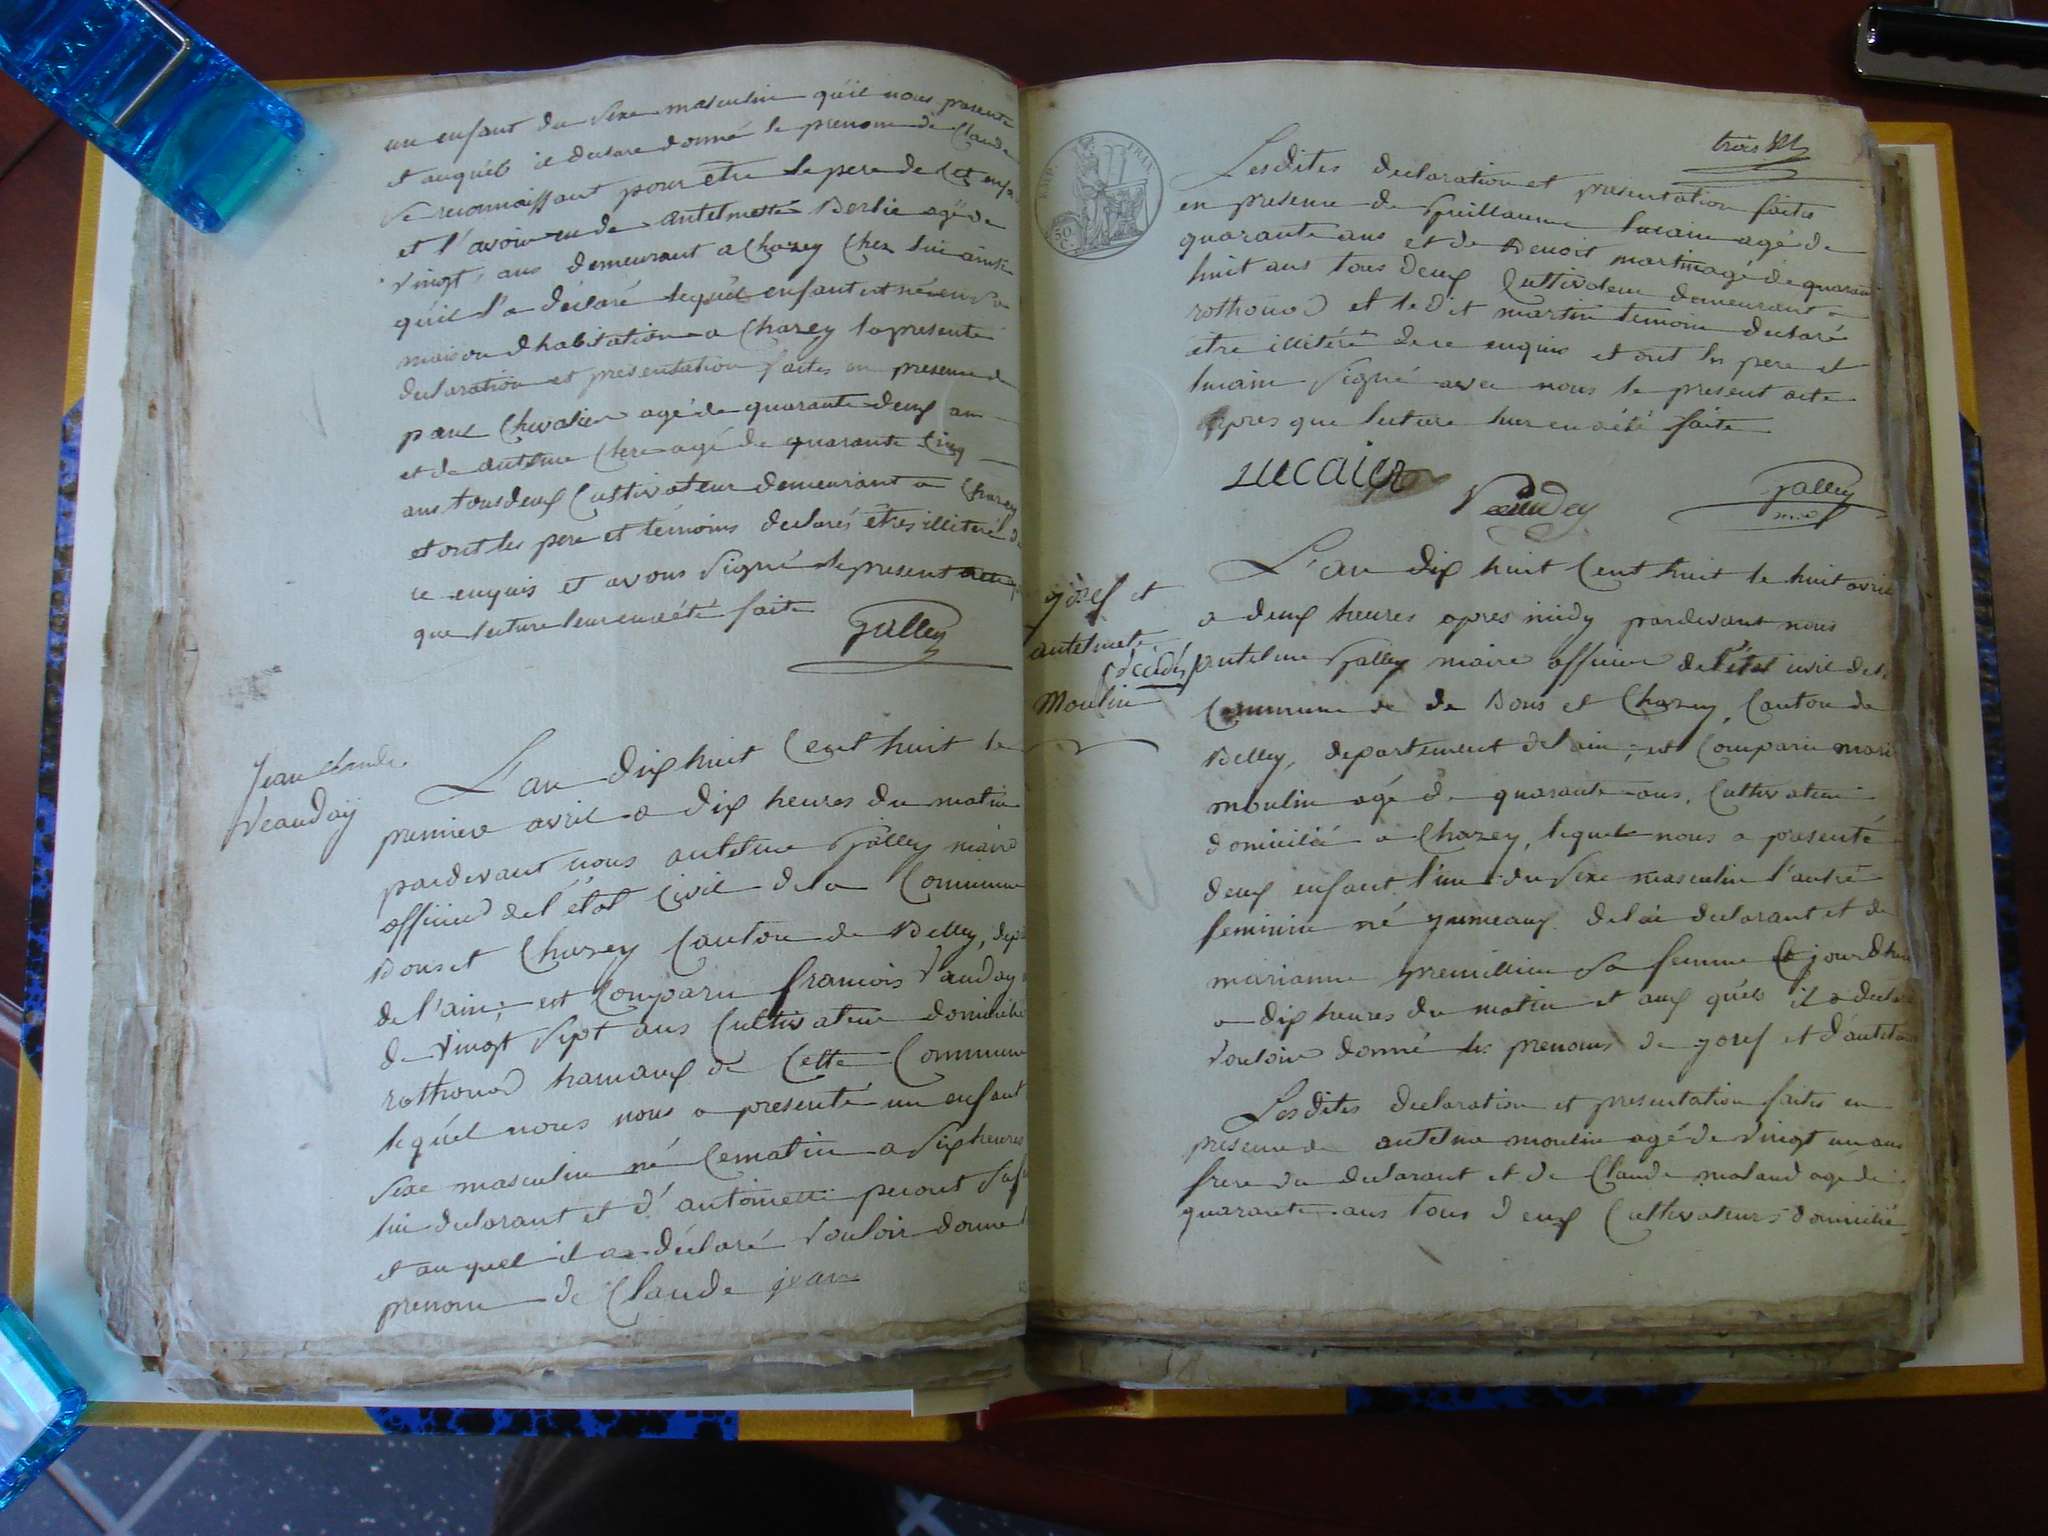 un enfant du sexe masculin qu'il nous presente
et auquel il declare donné le prenom de Claude
se reconnoissant pour etre le pere de cet enfa
et l'avoir eu de antelmette Berlie agé de
vingt ans demeurant a Chazey Chez lui ainsi
qu'il l'a déclaré lequel enfant est né en sa
maison d'habitation a Chazey la presente
declaration et presentation faites en presence de
paul Chevalier agé de quarante deux an
et de antelme Clere agé de quarante Cinq
ans tous deux Cultivateur demeurant a Chazey
et ont les pere et témoins declarés etres illiteré de
ce enquis et avons signé le present acte
que lecture leur en a été faite
Galley
Jean claude
Veauday
L'an dix huit Cent huit le
premiere avril a dix heures du matin
pardevant nous antelme Galley maire
officier de l'état Civil de la Commune
Bons et Chazey Canton de Belley, dep
de l'ain; est Comparu francois Vauday
de vingt sept ans Cultivateur domicilié
rothonod hamaux de Cette Commune
lequel nous nous a presenté un enfant
sexe masculin né Cematin a six heures
lui declarant et d'antoinette peront sa f
et auquel il a déclaré vouloir donne
prenom de Claude jean
EMP. FRAN.
50
C.
trois
Lesdites declaration et presentation faites
en presence de Guillaume lucain agé de
quarante ans et de Benoit martin agé de quaran
huit ans tous deux Cultivateur demeurant a
rothonod et le dit martin temoin declaré
etre illitéré de ce enquis et ont les pere et
lucain signé avec nous le present acte
apres que lecture leur en a été faite
Lucain
Vauday
Galley
m.e
josef et
antelmete
décédés
Moulin
L'an dix huit Cent huit le huit avril
a deux heures apres midy pardevant nous
antelme Galley maire officier de l'état civil de la
Commune de de Bons et Chazey, Canton de
Belley, departement de l'ain; est Comparu mari
moulin agé de quarante ans, Cultivateur
domicilié a Chazey, lequel nous a presenté
deux enfant l'un du sexe masculin l'autre
feminin né jumeaux de lui declarant et de
marianne premillieu sa femme Ce jourdhui
a dix heures du matin et aux quels il a declaré
vouloir donné les prenoms de josef et d'antelm
Lesdites declaration et presentation faites en
presence de antelme moulin agé de vingt un ans
frere du declarant et de Claude maland agé de
quarante ans tous deux Cultivateurs domicilié